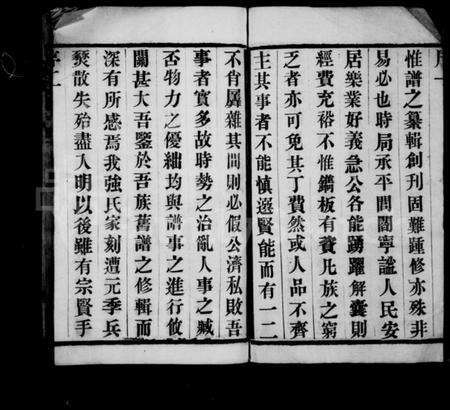 惟譜之纂輯創刊固難踵修亦殊非
易必也時局承平閭閻寧謐人民安
居樂業好義急公各能踴躍解囊則
經費充裕不惟鐫板有資凡族之窮
乏者亦可免其丁費然或人品不齊
主其事者不能慎選賢能而有一二
不肖羼雜其間則必假公濟私敗吾
事者實多故時勢之治亂人事之臧
否物力之優絀均與譜事之進行攸
關甚大吾鑒於吾族舊譜之修輯而
深有所感焉我強氏家刻遭元季兵
燹散失殆盡入明以後雖有宗賢手